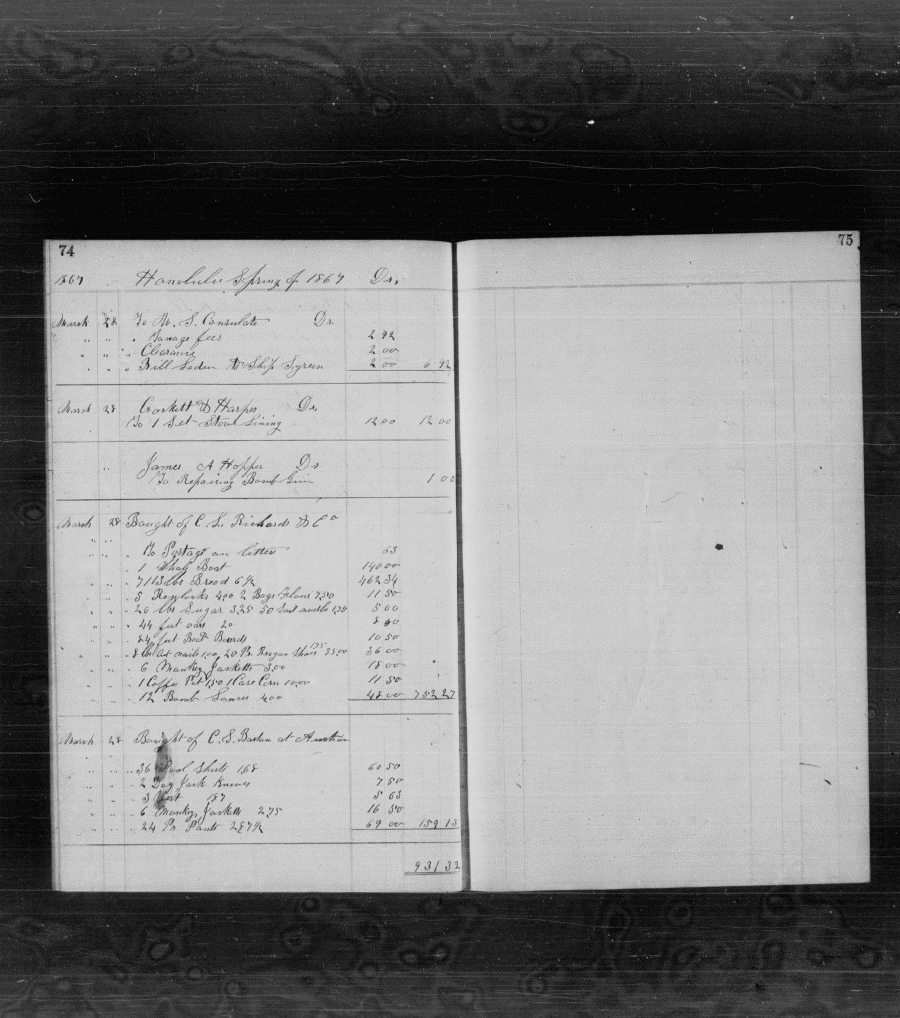 74
1867 Honolulu Spring of 1867 Dr.
March 28 To U. S. Consulate Dr
" " " Tonage fees 2 92
" " " Clearance 2 00
" " " Bill Laden Ship Syren 2 00 6 92
March 28 Crockett & Harper Dr.
To 1 Set Stove Lining 12 00 12 00
" James A Hopper Dr
To Repairing Bomb Gun 1 00
March 28 Bought of C. L. Richards & Co
" "
" " " To Postage on letters 63
" " " 1 Whale Boat 140 00
" " " 7113 lbs Bread 6 1/2 462 34
" " " 5 Rowlocks 400 2 Bags Flour 7,50 11 50
" " " 20 lbs Sugar 325 50 needles 1,75 5 00
" " " 44 feet oars 20 8 80
" " " 84 feet Boat Boards 10 50
" " " 8 lbs Cut nails 1,00, 20 Pr. Brogan Shoes 1,75 35,00 36 00
" " " 6 Monkey Jacketts 3,00 18 00
" " " 1 Coffee Pot 1,50 1 Case Corn 10,00 11 50
" " " 12 Bomb Lances 4,00 48 00 752 27
March 28 Bought of C. S. Bartow at Auction
" "
" " " 36 Wool Shirts 168 60 50
" " " 2 Doz Jack Knives 7 50
" " " 3 Vest 187 5 63
" " " 6 Monkey Jacketts 2 75 16 50
" " " 24 Pr Pants 2 87 1/2 69 00 159 13
931 32
75